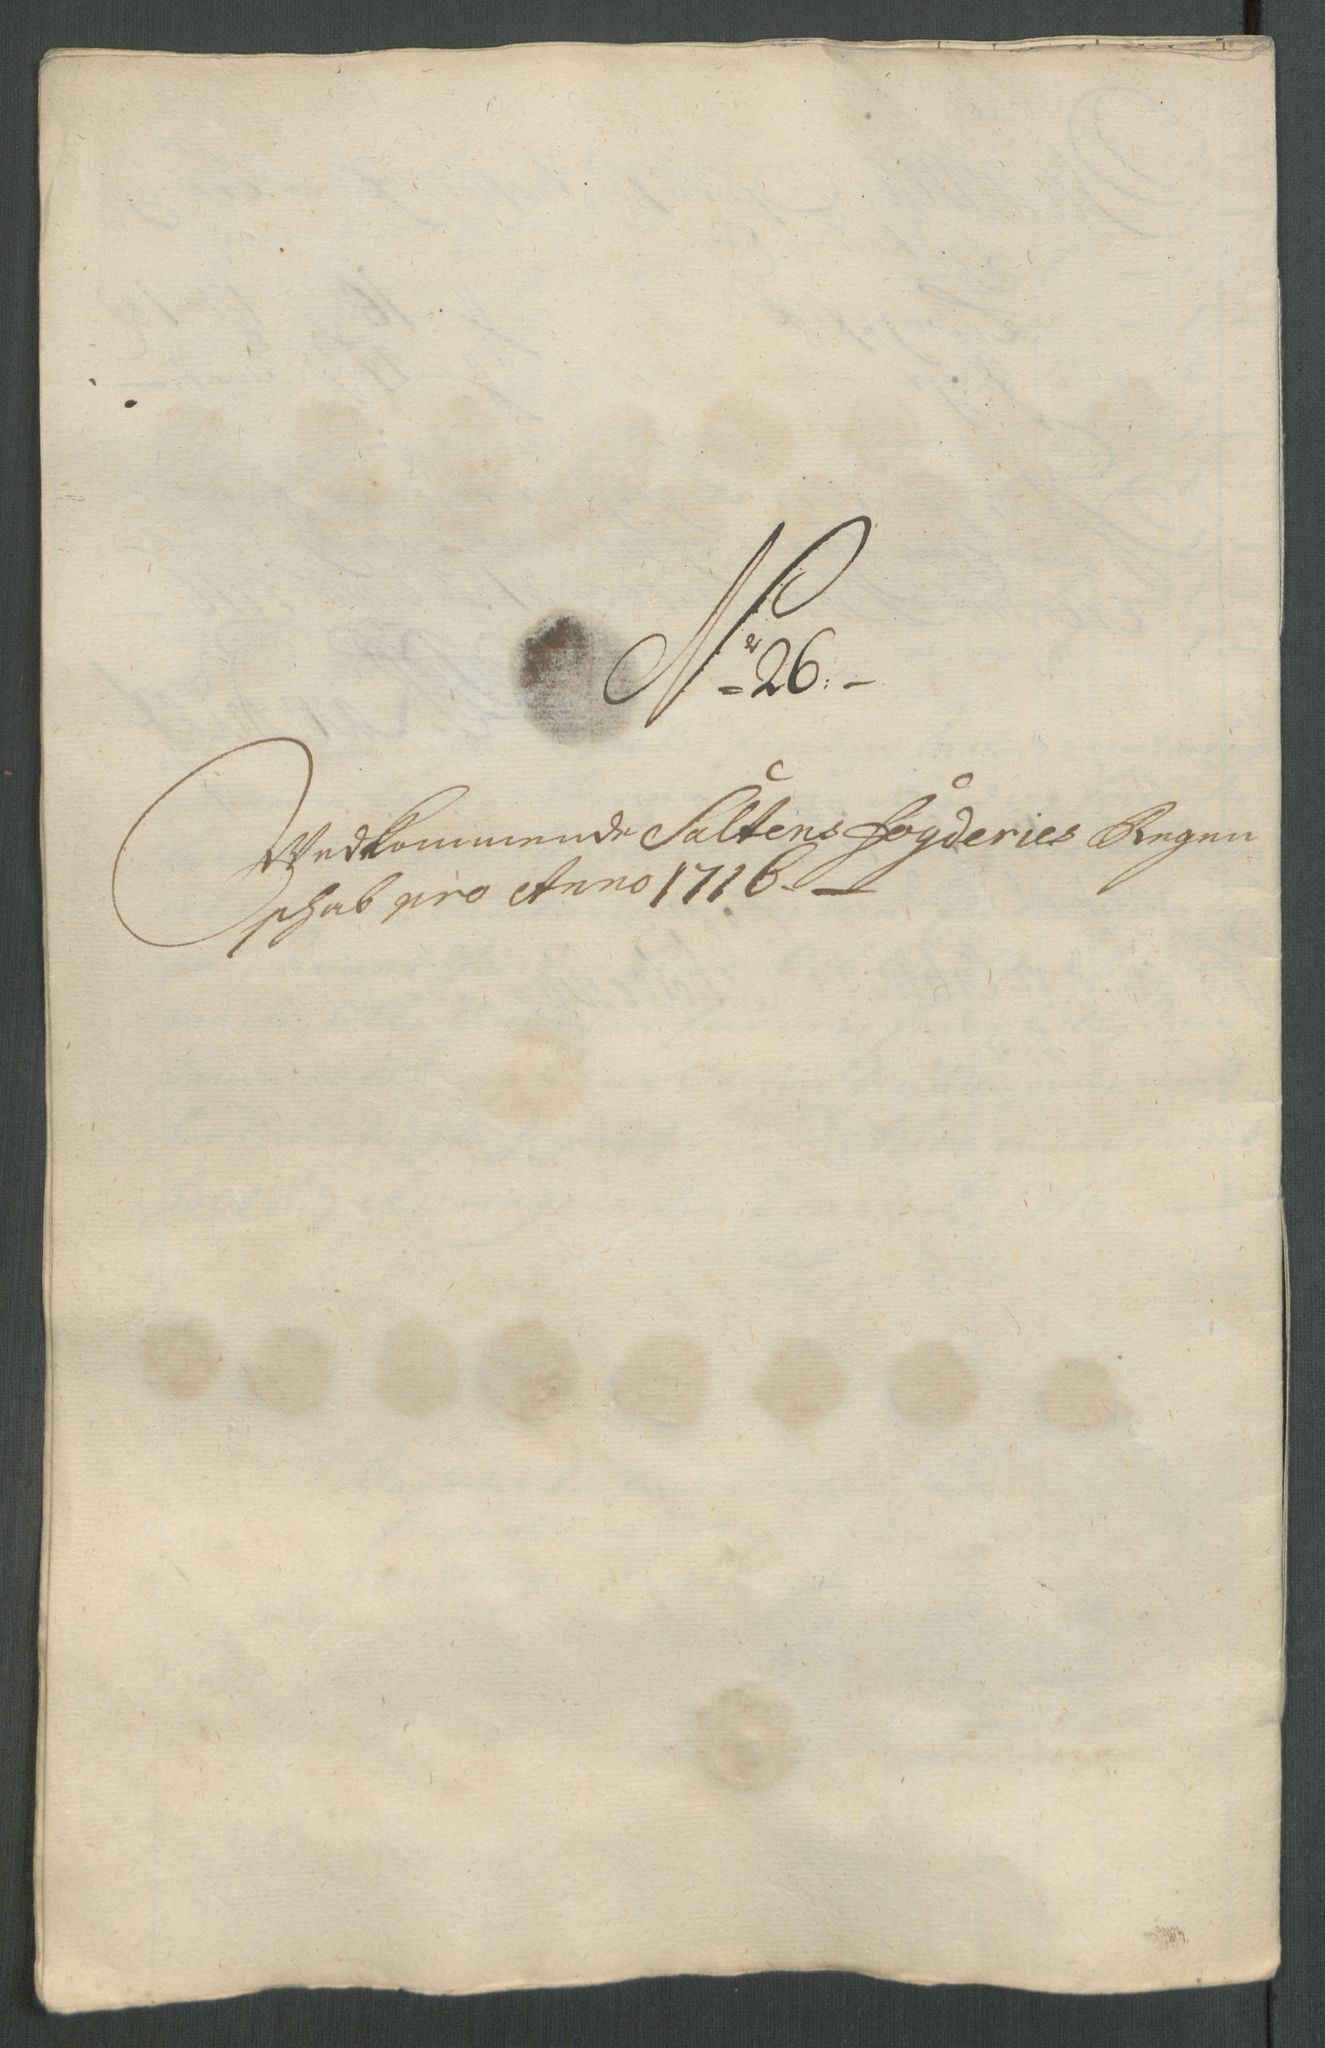 Nr 26.
Vedkommende Saltens fogderies Regen
schab pro Anno 1716.